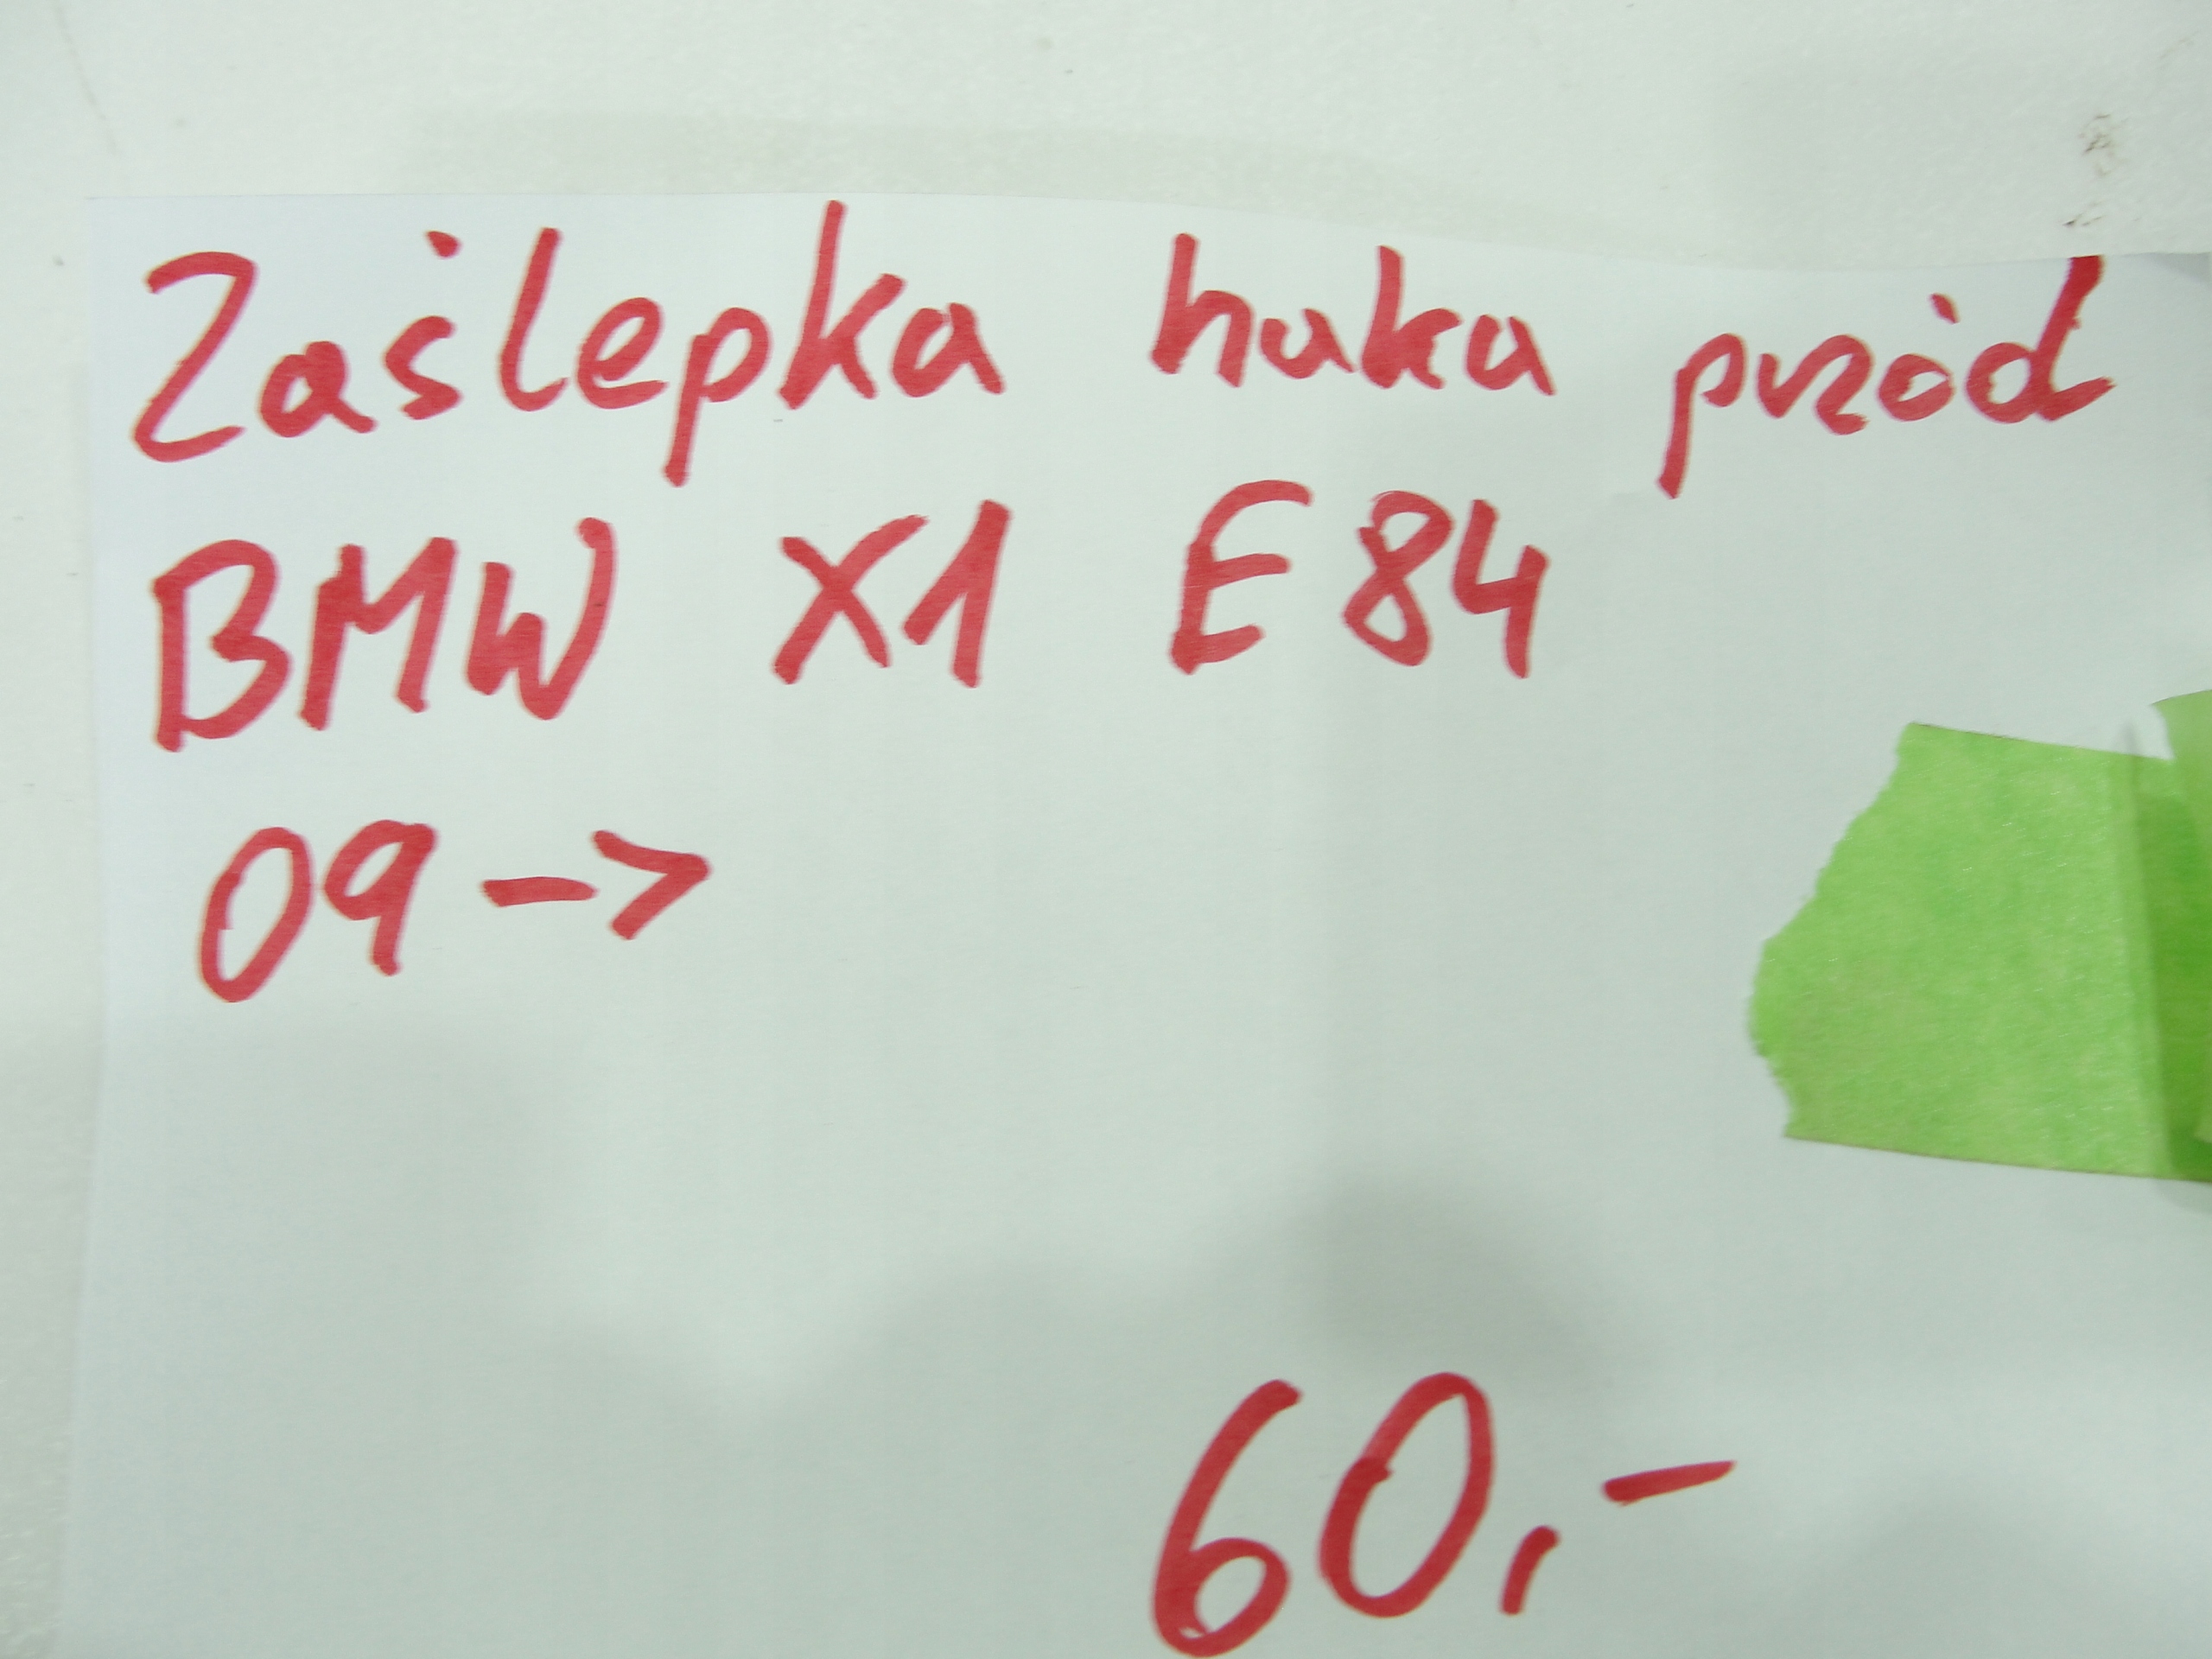 Zaślepka haka przód
BMW X1 E84
09->
60,-